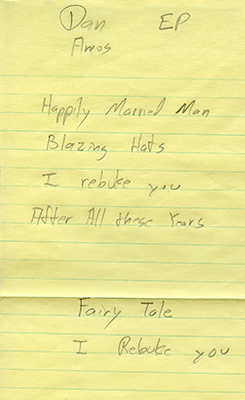 Dan EP
Amos
Happily Married Man
Blazing Hats
I rebuke you
After All these Years
Fairy Tale
I Rebuke you